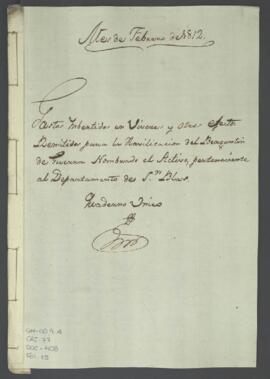 Mes de Febrero de 1812.
Gastos Imbertidos en Viveres y otros efectos
Remitidos para la Havilitacion del Bergantin
de Guerra Nombrado el Activo, perteneciente
al Departamento de S.n Blas.
Quaderno Unico